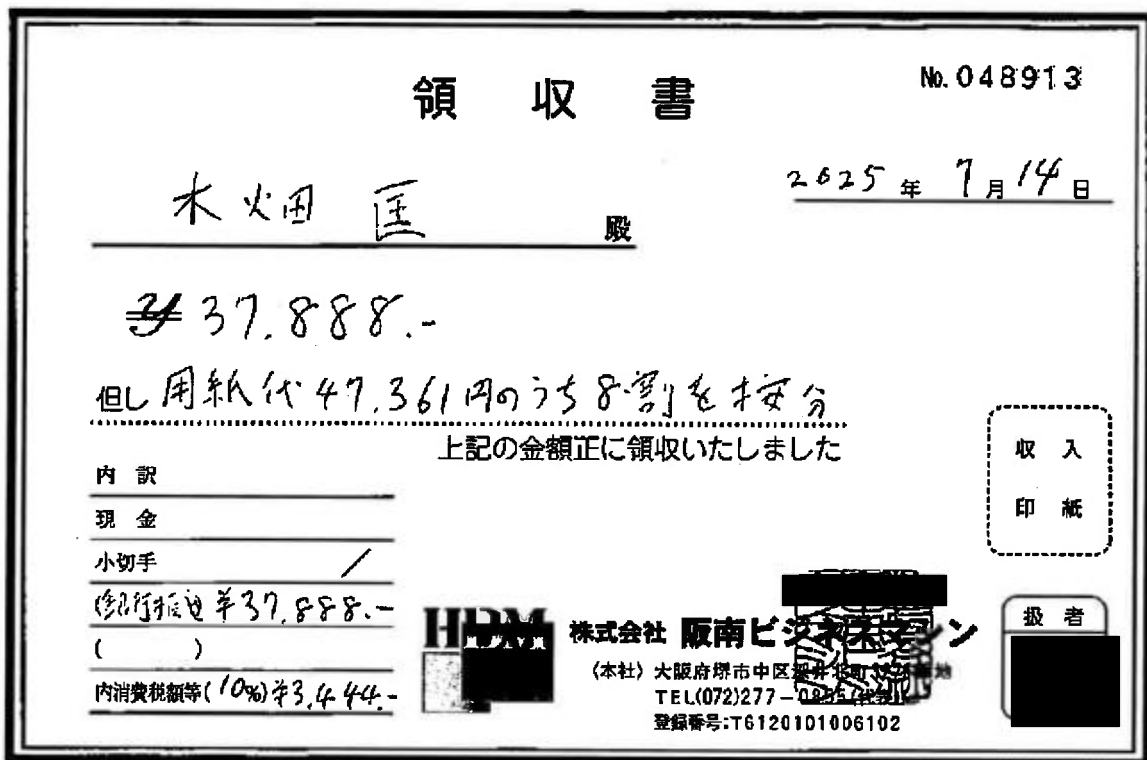 領収書
No.048913
2025年7月14日
木畑 匡 殿
¥37,888.-
但し 用紙代47,361円のうち8割を按分
上記の金額正に領収いたしました
収入
印紙
内訳
現金
小切手
(銀行振込 ¥37,888.-
( )
内消費税額等(10%)¥3,444.-
HBM
株式会社 阪南ビジネスマシン
(本社) 大阪府堺市中区深井北町
TEL(072)277-0855(代表)
登録番号:T6120101006102
扱者